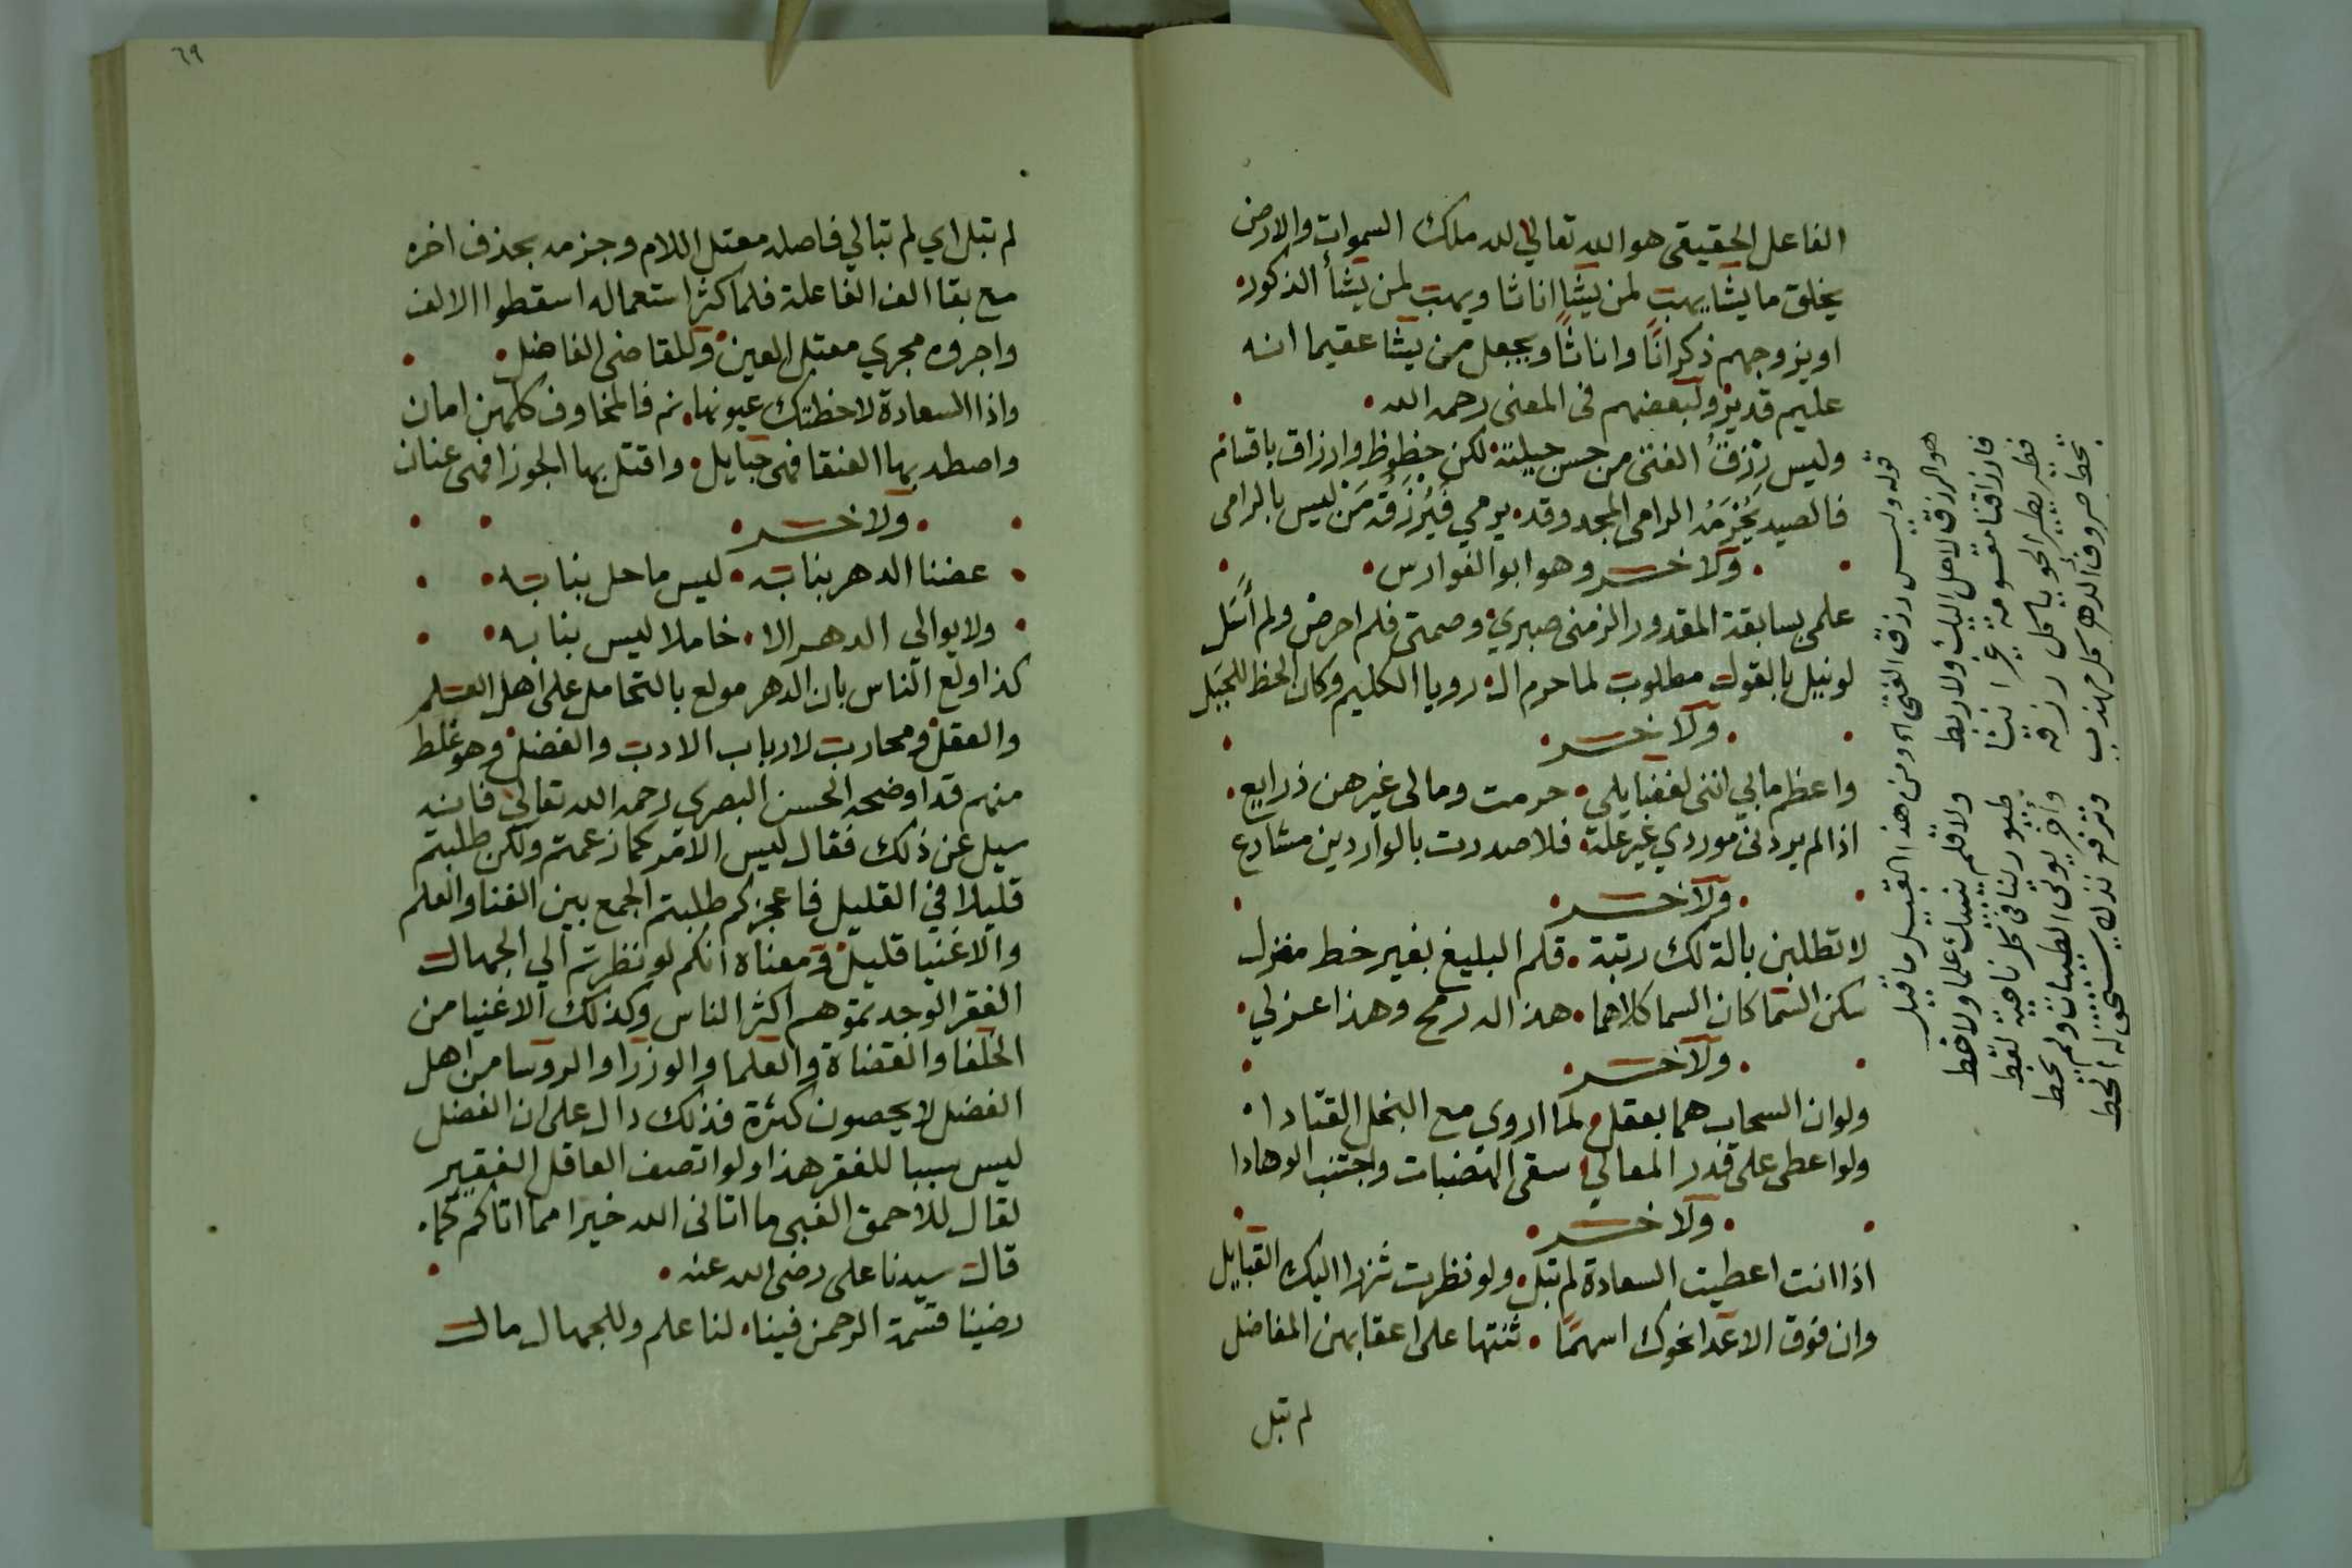 الفاعل الحقيقى هو الله تعالي لله ملك السموات والارض
يخلق ما يشا يهب لمن يشا اناثا ويهب لمن يشأ الذكور
او يزوجهم ذكرانًا واناثًا ويجعل من يشا عقيما انه
عليم قدير ولبعضهم فى المعنى رحمه الله
وليس رزق الفتى من حسن حيلته لكن حظوظ وارزاق باقسام
فالصيد يُحْرَمُه الرامى المجد وقد يرمي فَيُرْزَقُه مَنْ ليس بالرامى
ولاخر وهو ابو الفوارس
علمى بسابقة المقدور الزمنى صبري وصمتى فلم احرص ولم أَسَل
لو نيل بالقول مطلوب لما حرم الـ رويا الكليم وكان الحظ للجبل
ولاخر
واعظم ما بي اننى لفضايلي حرمت ومالى غيرهن ذرايع
اذا لم يردنى موردي غير علة فلا صدرت بالواردين مشارع
ولاخر
لا تطلبن بالة لك رتبة قلم البليغ بغير حظ مغزل
سكن السماكان السما كلاهما هذا له رمح وهذا اعزل
ولاخر
ولو ان السحاب هما بعقل لما اروي مع النخل القتادا
ولو اعطى على قدر المعالي سقى الهضبات واجتنب الوهادا
ولاخر
اذا انت اعطيت السعادة لم تبل ولو نظرت شزرا اليك القبايل
وان فوق الاعدا نحوك اسهمًا ثنتها على اعقابهن المفاصل
لم تبل
قوله وليس رزق الفتى ومن هذا القبيل ما قيل
هو الرزق لا حل اليك ولا ربط ولا قلم ينبيك علما ولا خط
فارزاقنا مقسومة غير اننا طيور بنا فى كل ناحية لقط
فطير يطير الجو ياكل رزقه وأخر يوتى الطيبات ولم يخط
تحط صروف الدهر كل مهذب وترفع نذلا يستحق له الحط
٦٩
لم تبل اي لم تبالي فاصله معتل اللام وجزمه بحذف اخره
مع بقا الف الفاعلة فلما كثر استعماله اسقطوا الالف
واجروه مجري معتل العين وللقاضى الفاضل
واذا السعادة لاحظتك عيونها نم فالمخاوف كلهن امان
واصطد بها العنقا فهى حبايل واقتل بها الجوزا فهى عنان
ولاخر
عضنا الدهر بنابه ليس ما حل بنا به
ولا يوالي الدهر الا خاملا ليس بنابه
كذا اولع الناس بان الدهر مولع بالتحامل على اهل العلم
والعقل ومحارب لارباب الادب والفضل وهو غلط
منهم قد اوضحه الحسن البصرى رحمه الله تعالي فانه
سيل عن ذلك فقال ليس الامر كما زعمتم ولكن طلبتم
قليلا في القليل فاعجزكم طلبتم الجمع بين الغنا والعلم
والاغنيا قليل ومعناه انكم لو نظرتم الي الجهال
الفقرا لوجدتموهم اكثر الناس وكذلك الاغنيا من
الخلفا والقضاة والعلما والوزرا والروسا من اهل
الفضل لا يحصون كثرة فذلك دال على ان الفضل
ليس سببا للفقر هذا ولو اتصف العاقل الفقير
لقال للاحمق الغبى ما اتانى الله خيرا مما اتاكم كما
قال سيدنا على رضى الله عنه
رضينا قسمة الرحمن فينا لنا علم وللجهال مال